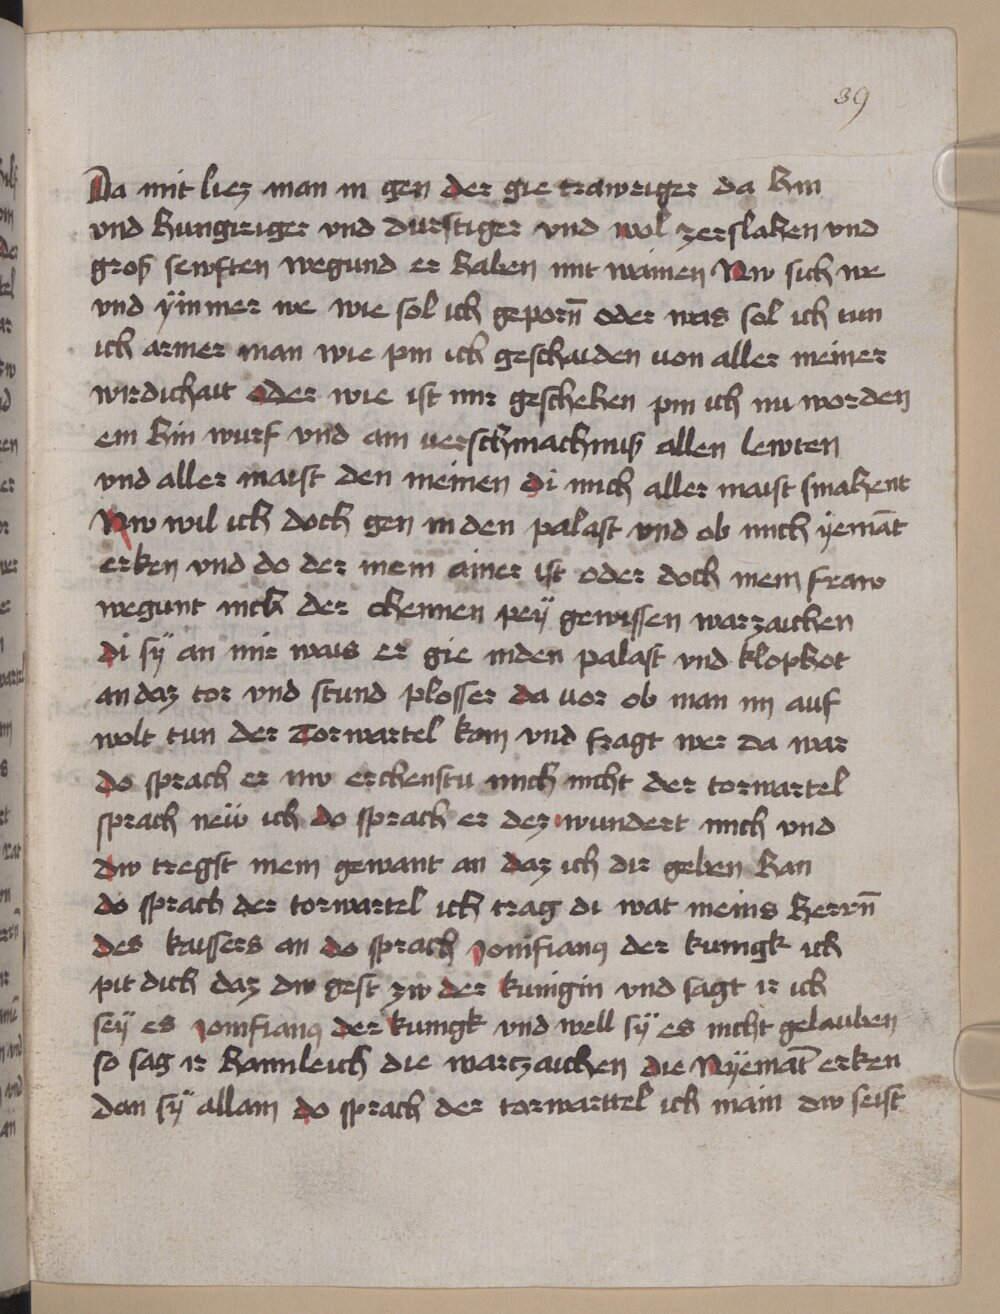 39
Da mit liez man in gen der gie trawriger da hin
vnd hungeriger vnd durstiger vnd wol zerslahen vnd
groß sewften wegund er haben mit wainen Nw sich we
vnd ÿmmer we wie sol ich geporn̄ oder was sol ich tun
ich armer man wie pin ich geschaiden von aller meiner
wirdichait oder wie ist mir geschehen pin ich nu worden
ein hin wurf vnd ain verschmachnuß allen lewten
vnd aller maist den meinen di mich aller maist smahent
Nw wil ich doch gen in den palast vnd ob mich ÿemāt
erken vnd do der mein ainer ist oder doch mein fraw
wegunt mich der chennen peÿ gewissen warzaichen
di sÿ an mir wais er gie inden palast vnd klophot
an daz tor vnd stund plosser da vor ob man im auf
wolt tun der Torwartel kom vnd fragt wer da war
do sprach er nw erchenstu mich nicht der torwartel
sprach neÿ ich do sprach er dez wundert mich vnd
dw tregst mein gewant an daz ich dir geben han
do sprach der torwartel ich trag di wat meins herrn̄
des kaissers an do sprach Jonifianꝯ der kunigk ich
pit dich daz dw gest zw der kunigin vnd sagt ir ich
seÿ es Jonifianꝯ der kunigk vnd well sÿ es nicht gelauben
so sag ir hannleich die wartzaichen die Nÿemāt erken
dan sÿ allain do sprach der torwarttel ich main dw seist